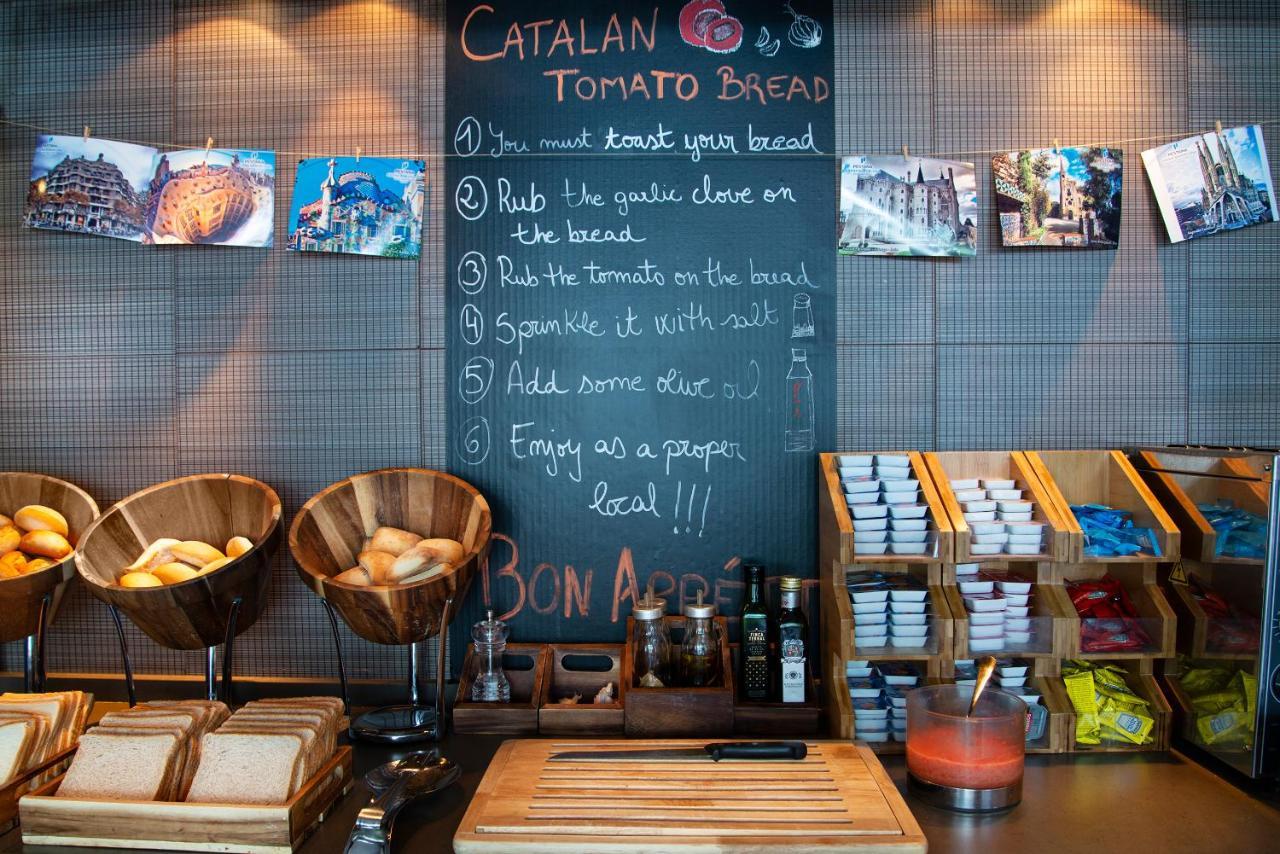 CATALAN
TOMATO BREAD
1 You must toast your bread
2 Rub the garlic clove on
the bread
3 Rub the tomato on the bread
4 Sprinkle it with salt
5 Add some olive oil
6 Enjoy as a proper
local!!!
BON APPÉT